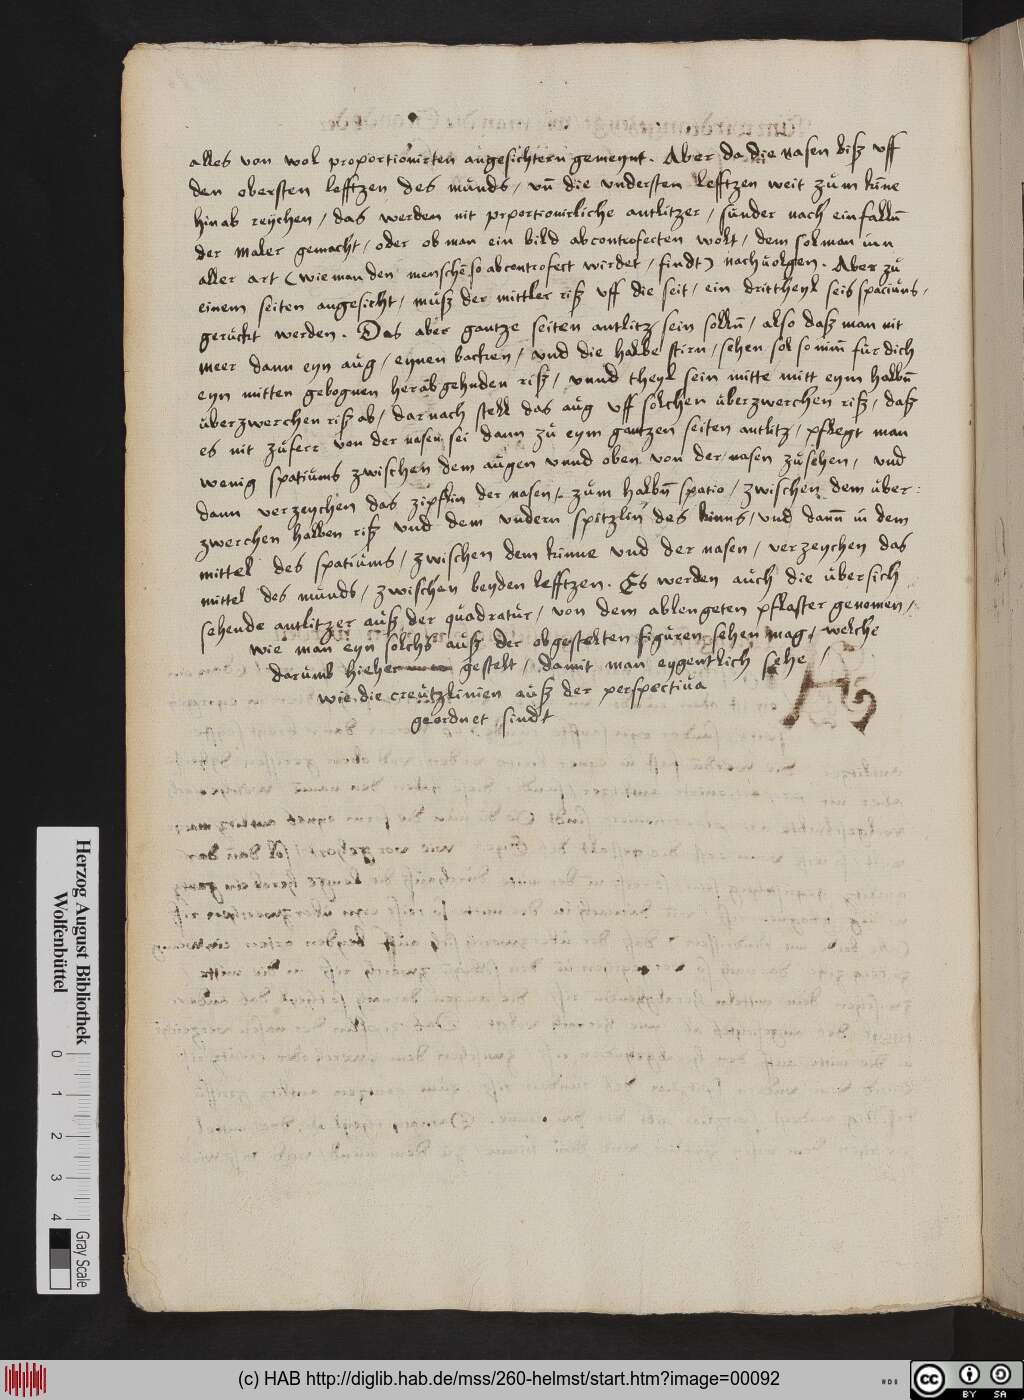 alles von wol proportionirten angesichtern gemeynt. Aber da die nasen biß vff
den obersten lefftzen des munds / vn̄ die vndersten lefftzen weit zům kūne
hinab reychen / das werden nit prportionirliche antlitzer / sunder nach einfalln̄
der maler gemacht / oder ob man ein bild abcontrofecten wolt / dem sol man inn
aller art (wie man den menschē so abcontrofect wirdet / findt) nachuolgen. Aber zů
einem seiten angesicht / můß der mittler riß vff die seit / ein drittheyl seis spaciums /
geruckt werden. Das aber gantze seiten antlitz sein solln̄ / also daß man nit
meer dann eyn aug / eynen backen / vnd die halbe stirn / sehen sol so nim̄ für dich
eyn mitten gebognen herabgehnden riß / vnnd theyl sein mitte mitt eym halbn̄
überzwerchen riß ab / darnach stell das aug vff solchen überzwerchen riß / daß
es nit zuferr von der nasen sei dann zů eym gantzen seiten antlitz / pflegt man
wenig spatiums zwischen dem augen vnnd oben von der nasen zůsehen / vnd
dann verzeychen das zipflin der nasen / zům halbn̄ spatio / zwischen dem über:
zwerchen halben riß vnd dem vndern spitzlin des kinns / vnd dann̄ in dem
mittel des spatiums / zwischen dem kinne vnd der nasen / verzeychen das
mittel des munds / zwischen beyden lefftzen. Es werden auch die übersich
sehende antlitzer auß der quadratur / von dem ablengeten pflaster genomen /
wie man eyn solchs auß der obgestelten figuren sehen mag / welche
darumb hieher gestelt / damit man eygentlich sehe /
wie die creutzlinien auß der perspectiua
geordnet sindt
Herzog August Bibliothek
Wolfenbüttel
0 1 2 3 4
Gray Scale
(c) HAB http://diglib.hab.de/mss/260-helmst/start.htm?image=00092
cc BY SA